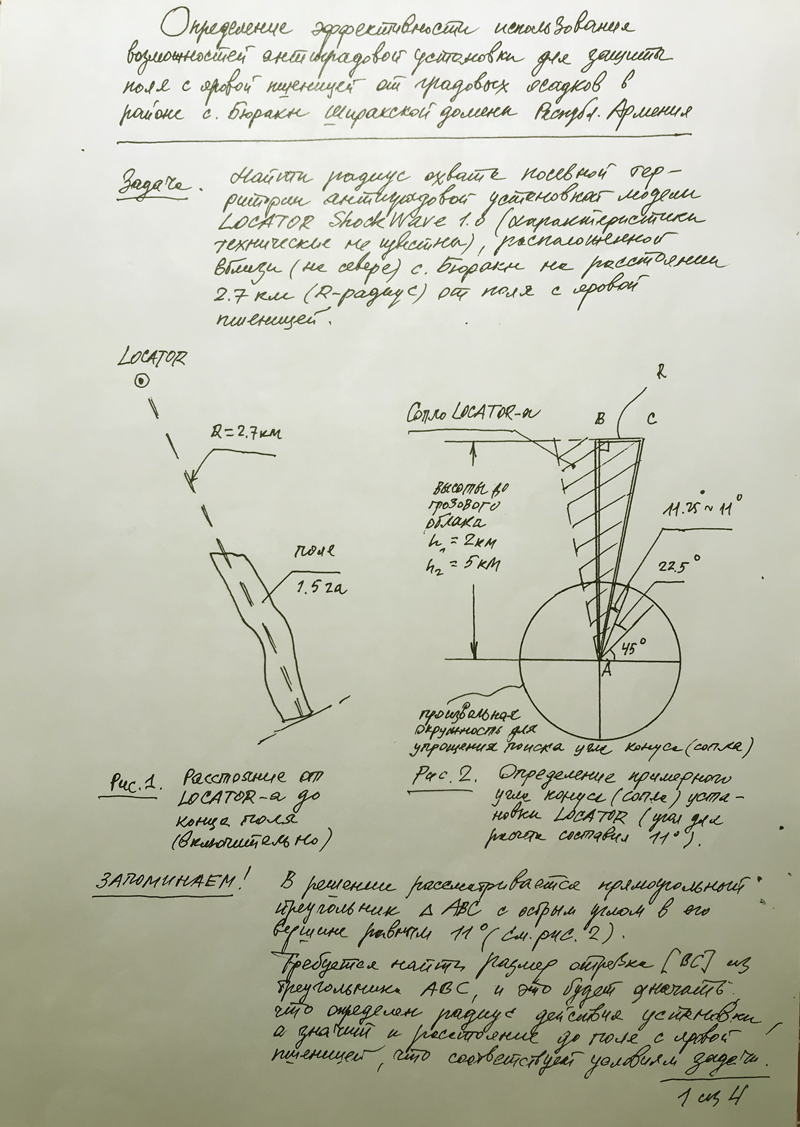 Определение эффективности использования
возможностей антиградовой установки для защиты
поля с яровой пшеницей от градовых осадков в
районе с. Бюракн Ширакской домены Республ. Армения
Задача. Найти радиус охвата посевной тер-
ритории антиградовой установкой модели
LOCATOR ShockWave 1.0 (характеристики
технические не известны), расположенной
вблизи (на севере) с. Бюракн на расстоянии
2.7 км (R-радиус) от поля с яровой
пшеницей.
LOCATOR
R=2.7км
поле
1.5га
R
Сопло LOCATOR-а
B C
высоты до
грозового
облака
h₁ = 2км
h₂ = 5км
11.25°~11°
22.5°
45°
A
произвальная
окружность для
упрощения поиска угла конуса (сопла)
Рис.1. Расстояние от
LOCATOR-а до
конца поля
(включительно)
Рис.2. Определение примерного
угла конуса (сопла) уста-
новки LOCATOR (угол для
расчета составил 11°).
ЗАПОМИНАЕМ! В решении рассматривается прямоугольный
треугольник Δ ABC с острым углом в его
вершине равным 11° (см. рис. 2).
Требуется найти размер отрезка [BC] из
треугольника ABC, и это будет означать
что определен радиус действия установки,
а значит и расстояние до поле с яровой
пшеницей, что соответствует условиям задачи.
1 из 4